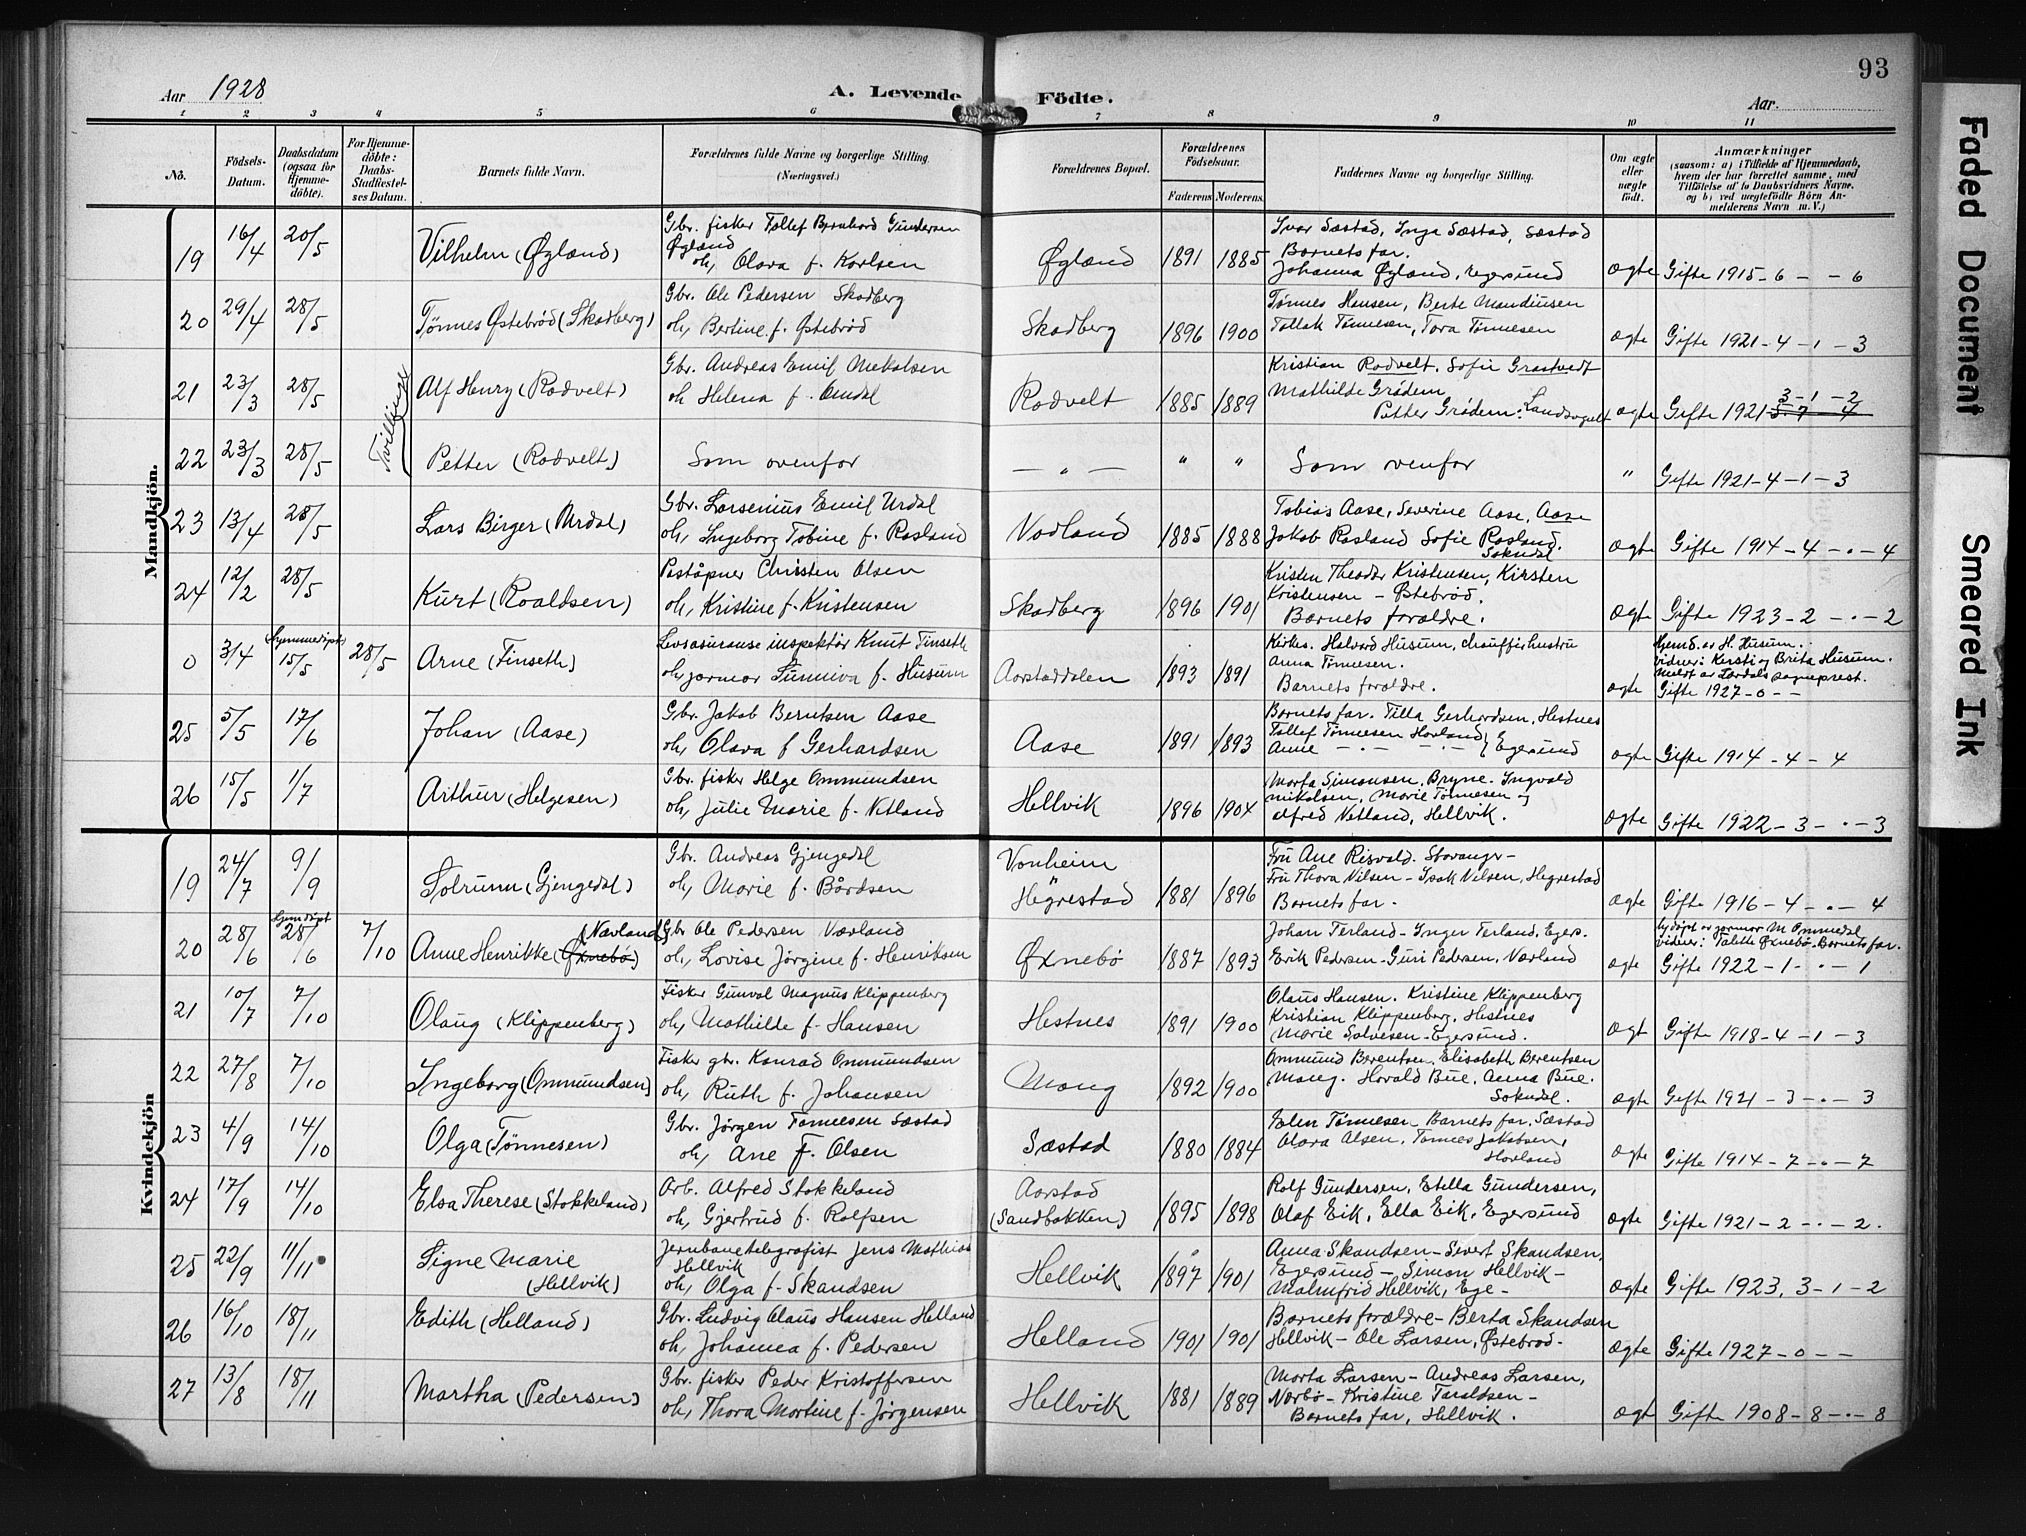 93
Aar 1928
A. Levende Födte.
Aar.
1 2 3 4 5 6 7 8 9 10 11
No.
Födsels-Datum.
Daabsdatum (ogsaa for Hjemmedöbte).
For Hjemmedöbte: Daabs-Stadfæstelses Datum.
Barnets fulde Navn.
Forældrenes fulde Navne og borgerlige Stilling. (Næringsvei.)
Forældrenes Bopæl.
Forældrenes Födselsaar.
Faderens Moderens
Faddernes Navne og borgerlige Stilling.
Om ægte eller uægte født.
Anmærkninger
(saasom: a) i Tilfælde af Hjemmedaab, hvem der har forrettet samme, med Tilföielse af to Daabsvidners Navne, og b) ved uægtefödte Börn Anmelderens Navn m. V.)
Mandkjön.
19 16/4 20/5 Vilhelm (Øgland)
Gbr. fisker Tollef Bernhard Gundersen
Øgland
oh, Olava f. Karlsen
Øgland 1891 1885
Ivar Sæstad, Inga Sæstad, Sæstad
Barnets far.
Johanna Øgland, Egersund
ægte Gifte 1915 - 6 - - 6
20 29/4 28/5 Tönnes Østebröd (Skadberg)
Gbr. Ole Pedersen Skadberg
oh, Bertine f. Østebröd
Skadberg 1896 1900
Tönnes Hansen, Berte Mandiusen
Tollak Tönnesen, Tora Tönnesen
ægte Gifte 1921 - 4 - 1 - 3
21 23/3 28/5 Tvillinger Alf Henry (Rodvelt)
Gbr. Andreas Emil Mekalsen
oh Helena f. Omdal
Rodvelt 1885 1889
Kristian Rodvelt, Sofie Grastvedt
Mathilde Grödem
Petter Grödem: Landsogelt
ægte Gifte 1921 3 - 1 - 2
5 - 7 4
22 23/3 28/5 Petter (Rodvelt)
Som ovenfor
— " — " " Som ovenfor "
Gifte 1921 - 4 - 1 - 3
23 13/4 28/5 Lars Birger (Urdal)
Gbr. Larsenius Emil Urdal
oh, Ingeborg Tobine f. Rasland
Nodland 1885 1888
Tobias Aase, Severine Aase, Aase
Jakob Rasland Sofie Rasland.
Sokndal
ægte Gifte 1914 - 4 - . - 4
24 12/2 28/5 Kurt (Roaldsen)
Poståpner Christen Olsen
oh, Kristine f. Kristensen
Skadberg 1896 1901
Kristen Theodor Kristensen, Kirsten
Kristensen - Østebröd.
Barnets foraldre.
ægte Gifte 1923 - 2 - . - 2
0 3/4 hjemmedöpt 15/5 28/5 Arne (Finseth)
Livsassuranse inspektör Knut Finseth
oh jormor Sunniva f. Husum
Aarstaddalen 1893 1891
Kirkes. Halvard Husum, chaufförhustru
Anna Tönnesen.
Barnets foraldre.
ægte
Hjemd. av H. Husum.
vidner: Kersti og Brita Husum.
Meldt av Lærdals sogneprest.
Gifte 1927 - 0 - -
25 5/5 17/6 Johan (Aase)
Gbr. Jakob Berntsen Aase
oh, Olava f Gerhardsen
Aase 1891 1893
Barnets far. Tilla Gerhardsen, Hestnes
Tollef Tönnesen Hovland
Anne — . — — . — } Egersund
ægte Gifte 1914 - 4 - 4
26 15/5 1/7 Arthur (Helgesen)
Gbr. fisker Helge Ommundsen
oh, Julie Marie f. Netland
Hellvik 1896 1904
Marta Simonsen, Bryne. Ingvald
Mikalsen, Marie Tönnesen -
Alfred Netland, Hellvik.
ægte Gifte 1922 - 3 - . - 3
Kvindekjön
19 24/7 9/9 Solrunn (Gjengedal)
Gbr. Andreas Gjengedal
oh, Marie f. Bårdsen
Vonheim
Hegrestad 1881 1896
Fru Ane Risvold. Stavanger -
Fru Thora Nilsen - Isak Nilsen, Hegrestad
Barnets far.
ægte Gifte 1916 - 4 - . - 4
20 28/6 Hjemdöpt 28/6 7/10 Anne Henrikke (Øxnebö) (Nævland)
Gbr Ole Pedersen Nævland
oh, Lovise Jörgine f. Henriksen
Øxnebö 1887 1893
Johan Terland - Inger Terland, Egers.
Erik Pedersen - Guri Pedersen, Nævland
ægte
hj. döpt av jormor M Ommedal
vidner: Talette Øxnebö. Barnets far.
Gifte 1922 - 1 - . - 1
21 10/7 7/10 Olaug (Klippenberg)
Fisker Gunval Magnus Klippenberg
oh, Mathilde f. Hansen
Hestnes 1891 1900
Olaus Hansen. Kristine Klippenberg
Kristian Klippenberg, Hestnes
Marie Salvesen - Egersund.
ægt Gifte 1918 - 4 - 1 - 3
22 27/8 7/10 Ingeborg (Ommundsen)
Fisker gbr. Konrad Ommundsen
oh, Ruth f. Johansen
Mong 1892 1900
Ommund Berentsen, Elisabeth Berentsen
Mong. Horald Bue, Anna Bue.
Sokndal.
ægte Gifte 1921 - 3 - . - 3
23 4/9 14/10 Olga (Tönnesen)
Gbr. Jörgen Tönnesen Sæstad
oh, Ane F. Olsen
Sæstad 1880 1884
Elen Tönnesen - Barnets far, Sæstad
Olava Olsen, Tönnes Jakobsen,
Hovland
ægte Gifte 1914 - 7 - . - 7
24 17/9 14/10 Elsa Therese (Stokkeland)
Arb. Alfred Stokkeland
oh, Gjertrud f. Rolfsen
Aarstad
(Sandbakken) 1895 1898
Rolf Gundersen, Etella Gundersen,
Olaf Eik, Ella Eik, Egersund
ægte Gifte 1921 - 2 - . - 2.
25 22/9 11/11 Signe Marie
(Hellvik)
Jernbanetelegrafist Jens Mathias
Hellvik
oh, Olga f. Skandsen
Hellvik 1897 1901
Anna Skandsen - Sivert Skandsen,
Egersund - Simon Hellvik -
Malmfrid Hellvik, Ege -
ægte Gifte 1923. 3 - 1 - 2
26 16/10 18/11 Edith (Helland)
Gbr. Ludvig Olaus Hansen Helland
oh, Johanna f. Pedersen
Helland 1901 1901
Barnets foraldre - Berta Skandsen
Hellvik - Ole Larsen, Østebröd.
ægte Gifte 1927 - 0 - -
27 13/8 18/11 Martha (Pedersen)
Gbr. fisker Peder Kristoffersen
oh, Thora Martine f. Jörgensen
Hellvik 1881 1889
Marta Larsen - Andreas Larsen,
Nærbö - Kristine Taraldsen -
Barnets far, Hellvik.
ægt Gifte 1908 - 8 - . - 8
Faded Document
Smeared Ink